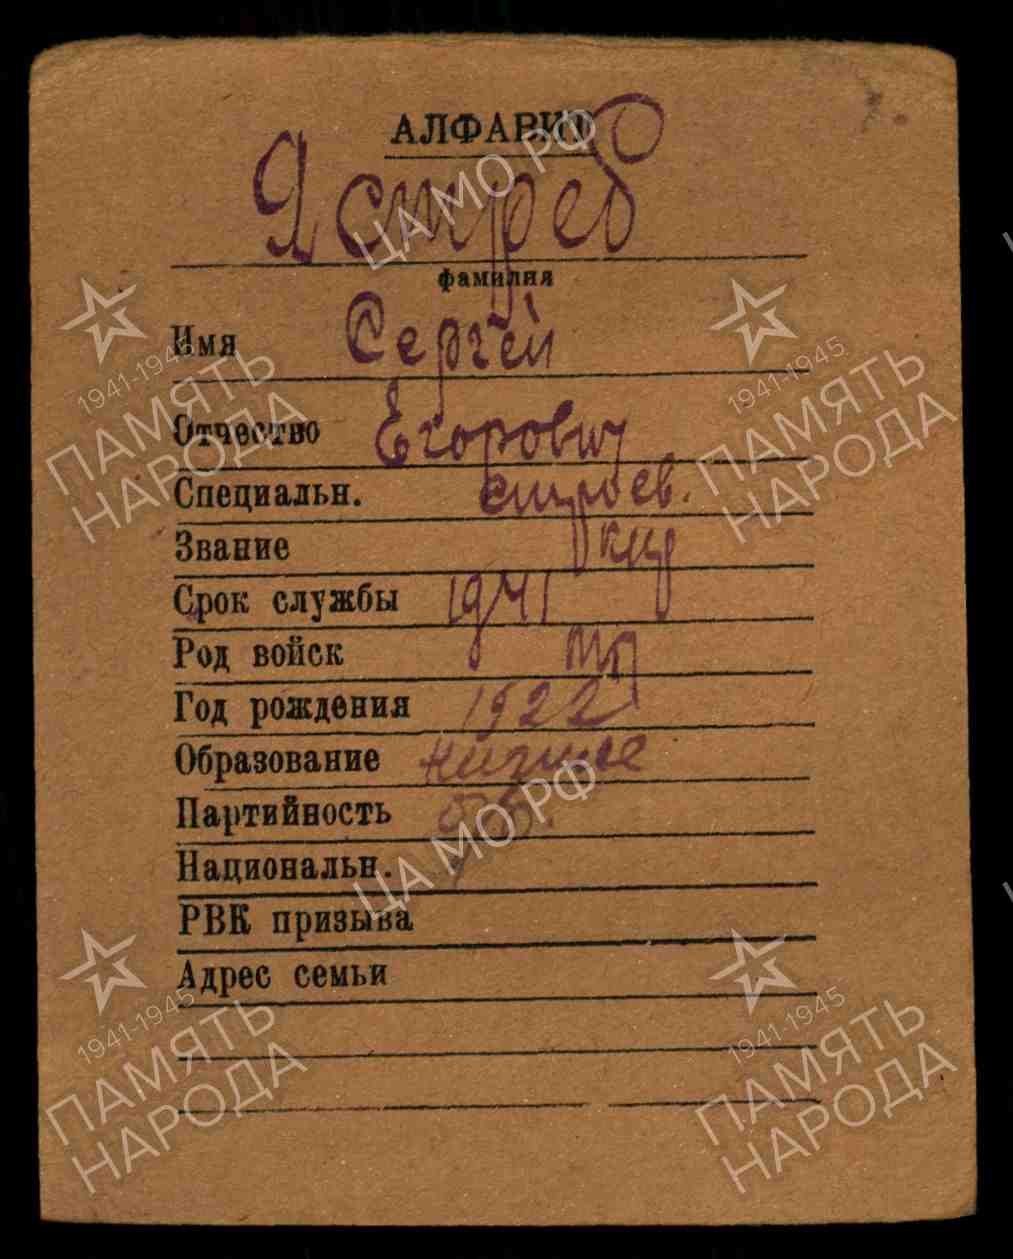 АЛФАВИТ
Ястреб
фамилия
Имя Сергей
Отчество Егорович
Специальн. строев.
Звание кр
Срок службы 1941
Род войск
Год рождения 1922
Образование низшее
Партийность б/б.
Национальн.
РВК призыва
Адрес семьи
ЦАМО РФ
1941-1945
ПАМЯТЬ
НАРОДА
1941-1945
ПАМЯТЬ
НАРОДА
ЦАМО РФ
1941-1945
ПАМЯТЬ
НАРОДА
1941-1945
ПАМЯТЬ
НАРОДА